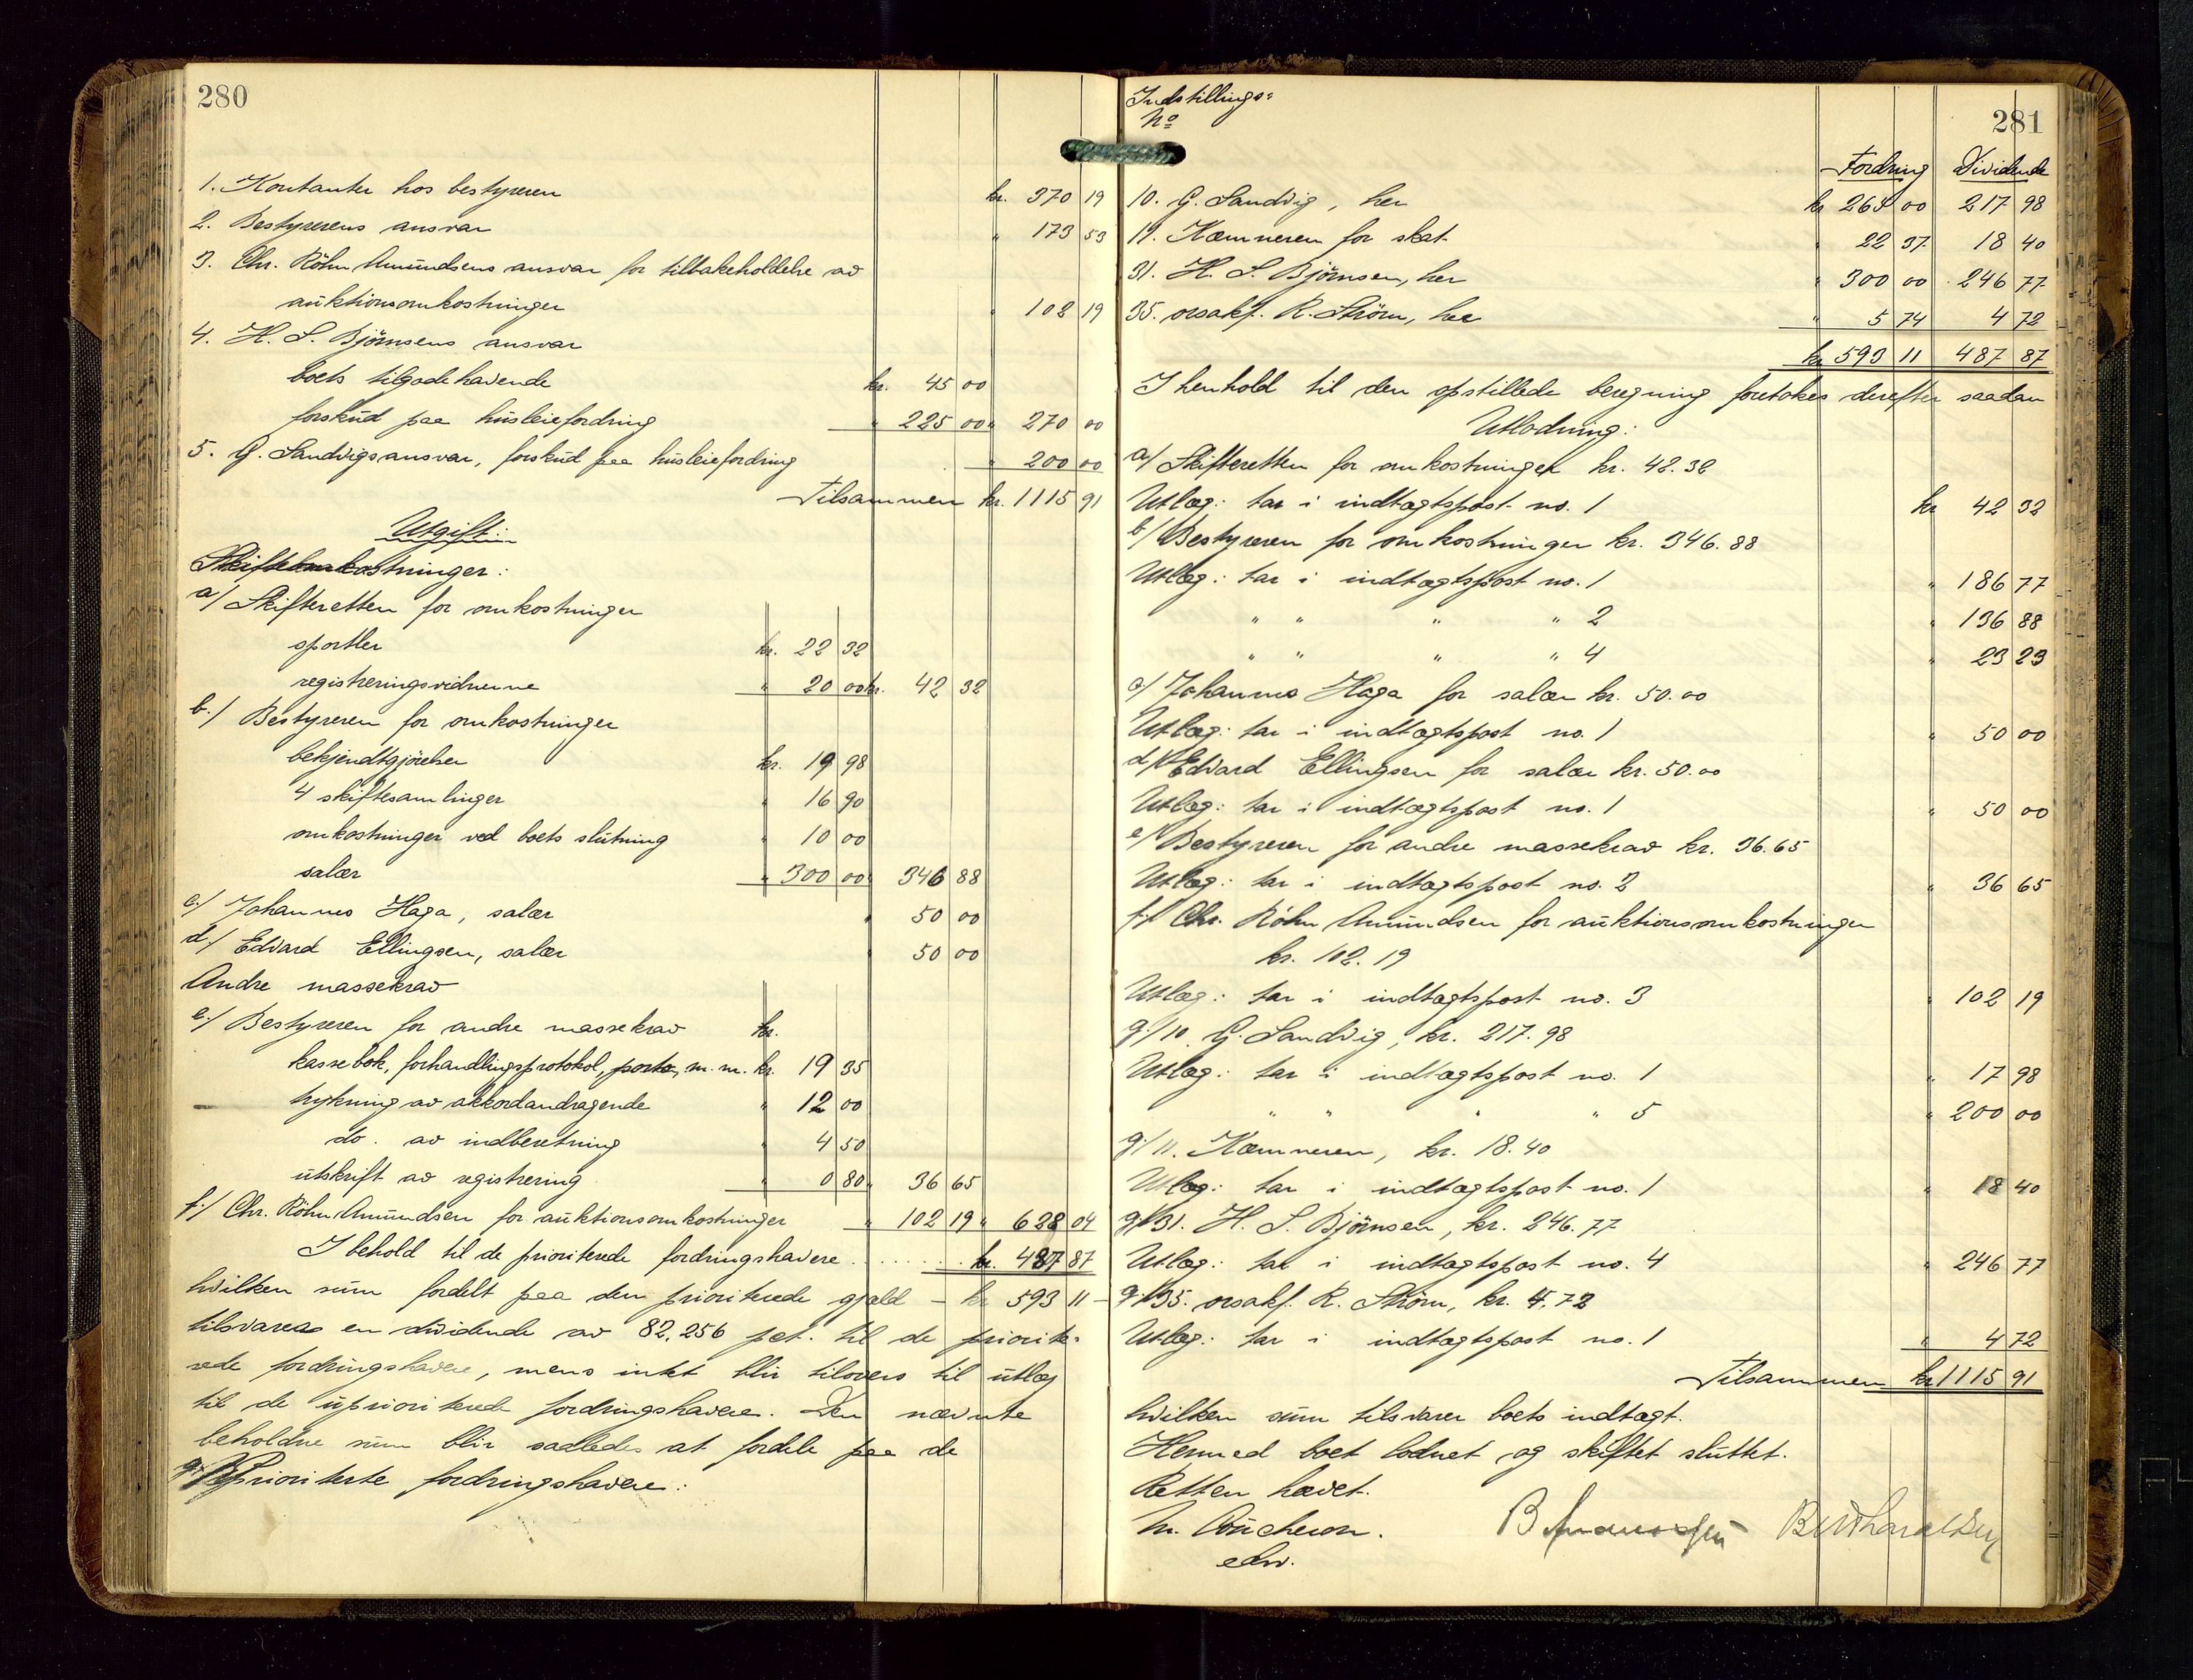 280
1. Kontanter hos bestyreren kr. 370 19
2. Bestyrerens ansvar " 173 53
3. Chr. Röhn Amundsens ansvar for tilbakeholdelse av
auktionsomkostninger " 102 19
4. H. S. Björnsens ansvar
boets tilgodehavende kr. 45 00
forskud paa husleiefordring " 225 00 " 270 00
5. G. Sandvigs ansvar, forskud paa husleiefordring " 200 00
Tilsammen kr. 1115 91
Utgift:
Skifteomkostninger:
a/ Skifteretten for omkostninger
sportler kr. 22 32
registreringsvidnerne " 20 00 kr. 42 32
b./ Bestyreren for omkostninger
bekjendtgjörelser kr. 19 98
4 skiftesamlinger " 16 90
omkostninger ved boets slutning " 10 00
salær " 300 00 " 346 88
c./ Johannes Haga, salær " 50 00
d./ Edvard Ellingsen, salær " 50 00
Andre massekrav
e./ Bestyreren for andre massekrav kr.
kassebok, forhandlingsprotokol, porto, m. m. kr. 19 35
trykning av akkordandragende " 12 00
do. av indberetning " 4 50
utskrift av registrering " 0 80 " 36 65
f./ Chr. Röhn Amundsen for auktionsomkostninger " 102 19 " 628 04
I behold til de prioriterede fordringshavere ........ kr. 487 87
hvilken sum fordelt paa den prioriterede gjæld – kr 593 11 –
tilsvarer en dividende av 82,256 pct. til de priorite-
rede fordringshavere, mens intet blir tilovers til utlæg
til de uprioriterede fordringshavere. Den nævnte
beholdne sum blir saaledes at fordele paa de
g./ Prioriterte fordringshavere:
281
Indstillings-
No
Fordring Dividende
10. G. Sandvig, her kr 265 00 217 98
11. Kæmneren for skat " 22 37 18 40
31. H. S. Björnsen, her " 300 00 246 77
35. orsakf. R. Ström, her " 5 74 4 72
kr 593 11 487 87
I henhold til den opstillede beregning foretokes derefter saadan
Utlodning:
a/ Skifteretten for omkostninger kr. 42.32
Utlæg: tar i indtægtspost no. 1 kr 42 32
b/ Bestyreren for omkostninger kr. 346.88
Utlæg: tar i indtægtspost no. 1 " 186 77
" " " " 2 " 136 88
" " " " 4 " 23 23
c/ Johannes Haga for salær kr. 50.00
Utlæg: tar i indtægtspost no. 1 " 50 00
d/ Edvard Ellingsen for salær kr. 50.00
Utlæg: tar i indtægtspost no. 1 " 50 00
e/ Bestyreren for andre massekrav kr. 36.65
Utlæg: tar i indtægtspost no. 2 " 36 65
f./ Chr. Röhn Amundsen for auktionsomkostninger
kr. 102.19
Utlæg: tar i indtægtspost no. 3 " 102 19
g./10. G. Sandvig, kr. 217.98
Utlæg: tar i indtægtspost no. 1 " 17 98
" " " " 5 " 200 00
g./11. Kæmneren, kr. 18.40
Utlæg: tar i indtægtspost no. 1 " 18 40
g./31. H. S. Björnsen, kr. 246.77
Utlæg: tar i indtægtspost no. 4 " 246 77
g./35. orsakf. R. Ström, kr. 4.72
Utlæg: tar i indtægtspost no. 1 " 4 72
Tilsammen kr 1115 91
hvilken sum tilsvarer boets indtægt.
Hermed boet lodnet og skiftet sluttet.
Retten hævet.
edsv.